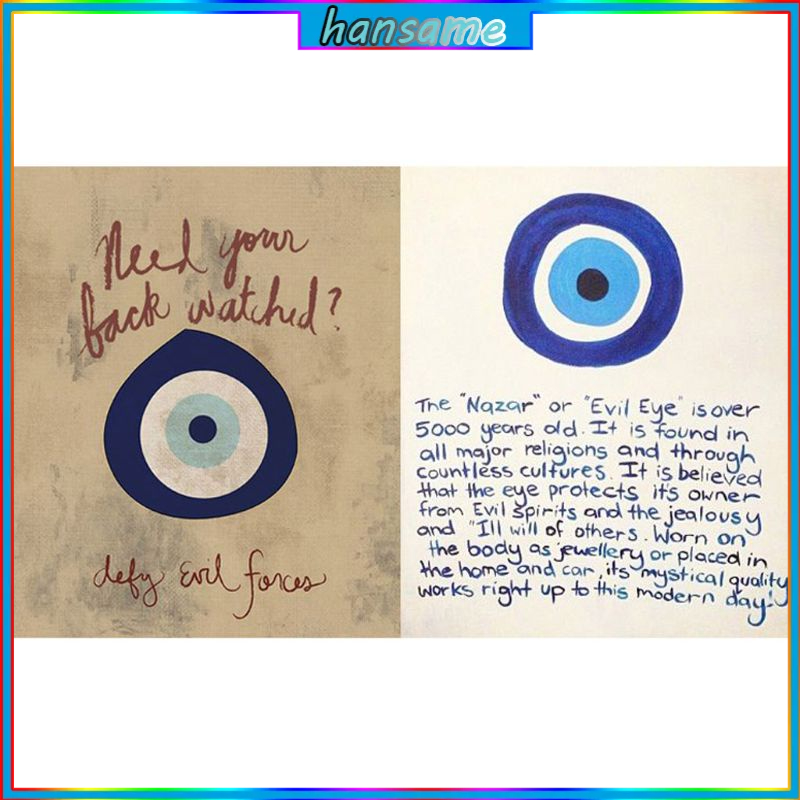 hansame
Need your
back watched?
defy Evil forces
The "Nazar" or "Evil Eye" is over
5000 years old. It is found in
all major religions and through
countless cultures. It is believed
that the eye protects it's owner
from Evil Spirits and the jealousy
and "Ill will of others. Worn on
the body as jewellery or placed in
the home and car, its mystical quality
works right up to this modern day!